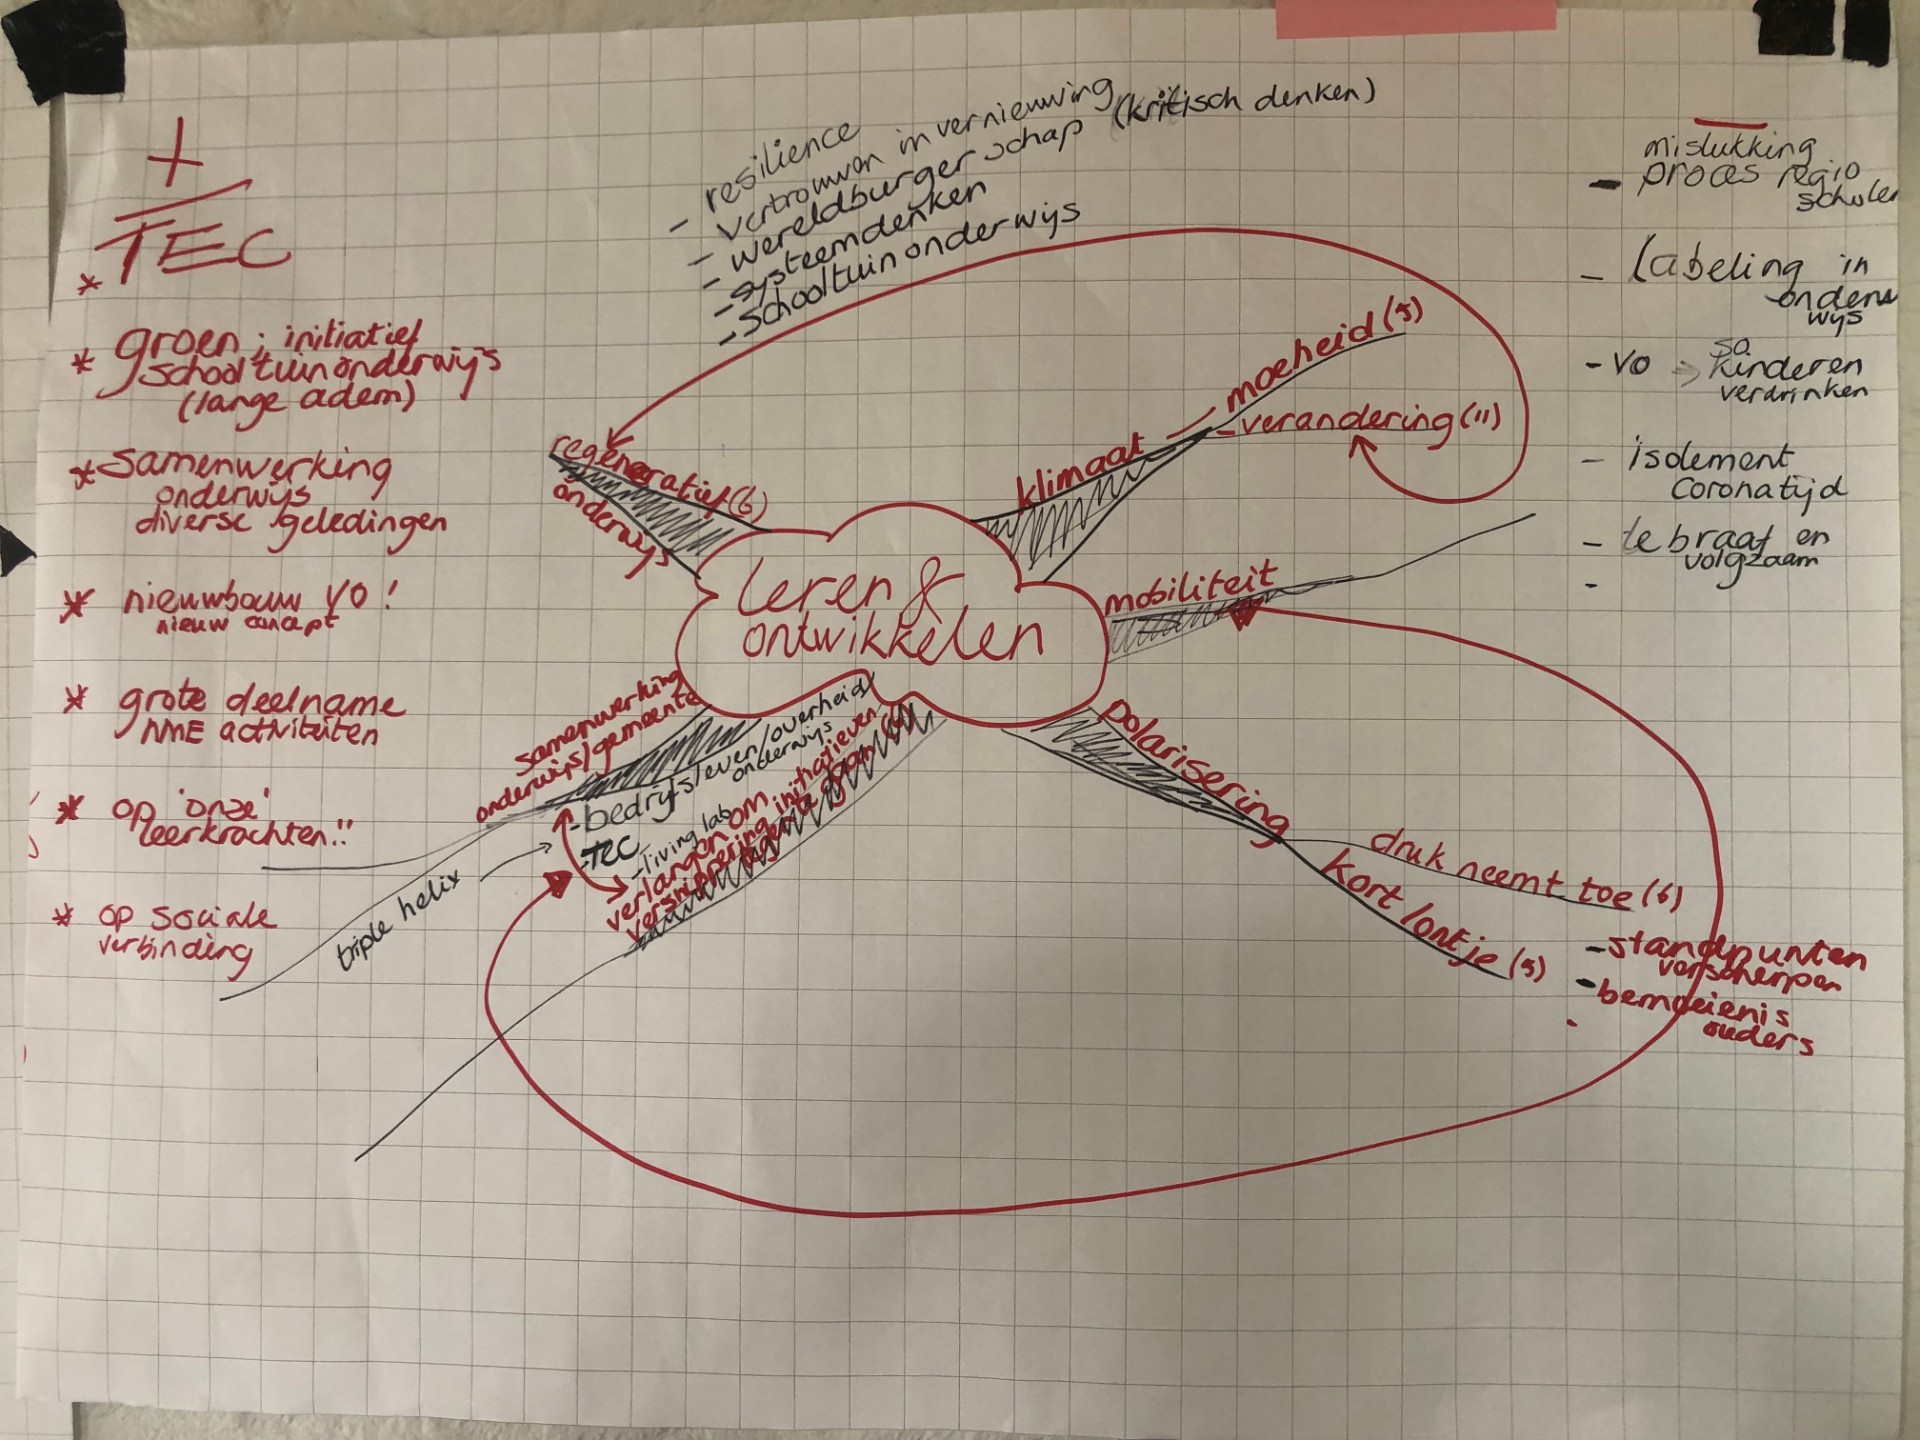 +
* TEC
* groen; initiatief
schooltuinonderwijs
(lange adem)
* samenwerking
onderwijs
diverse geledingen
* nieuwbouw VO!
nieuw concept
* grote deelname
NME activiteiten
* op 'onze'
leerkrachten!!
* op sociale
verbinding
- resilience
- vertrouwen in vernieuwing
- wereldburgerschap (kritisch denken)
- systeemdenken
- schooltuinonderwijs
regeneratief (6)
onderwijs
klimaat
- moeheid (5)
- verandering (11)
mobiliteit
leren &
ontwikkelen
polarisering
druk neemt toe (6)
kort lontje (5)
- standpunten
verscherpen
- bemoeienis
ouders
samenwerking
onderwijs/gemeente
- bedrijfsleven/overheid/
onderwijs
- TEC
- living lab
triple helix
verlangen om
versnippering initiatieven
tegen te gaan
—
mislukking
- proces regio
scholen
- labeling in
onder
wijs
- VO → so
kinderen
verdrinken
- isolement
coronatijd
- te braaf en
volgzaam
-